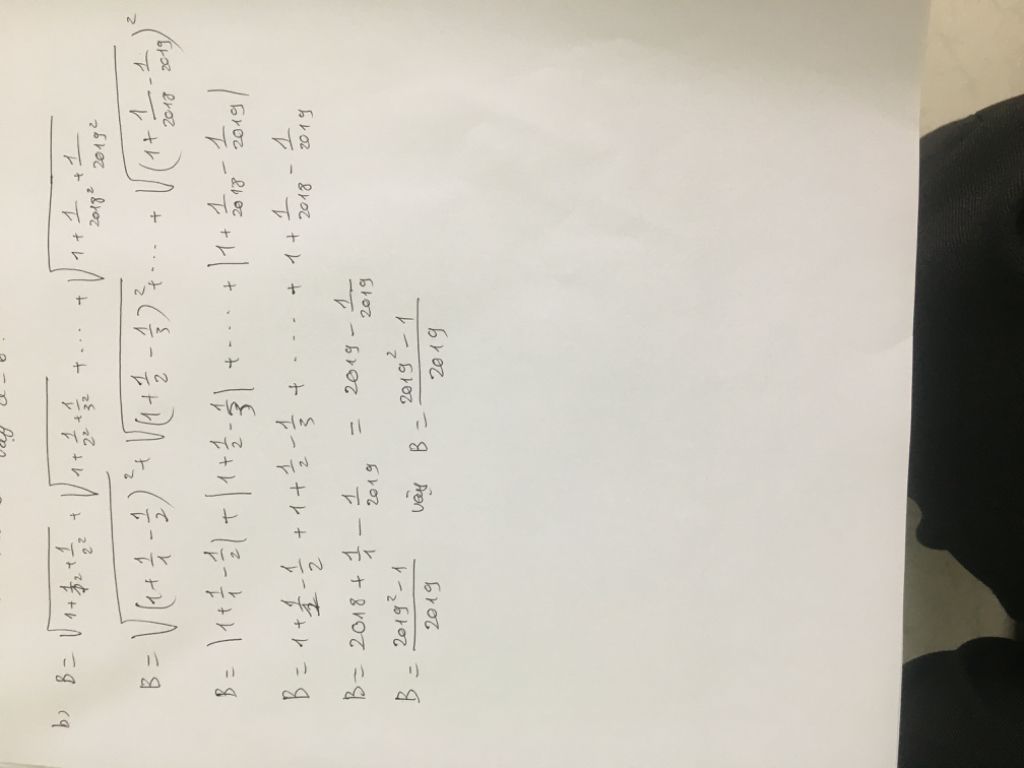 b) B = √(1 + 1/1² + 1/2²) + √(1 + 1/2² + 1/3²) + .... + √(1 + 1/2018² + 1/2019²)
B = √(1 + 1/1 - 1/2)² + √(1 + 1/2 - 1/3)² + .... + √(1 + 1/2018 - 1/2019)²
B = |1 + 1/1 - 1/2| + |1 + 1/2 - 1/3| + .... + |1 + 1/2018 - 1/2019|
B = 1 + 1/1 - 1/2 + 1 + 1/2 - 1/3 + .... + 1 + 1/2018 - 1/2019
B = 2018 + 1/1 - 1/2019 = 2019 - 1/2019
B = (2019² - 1)/2019 vậy B = (2019² - 1)/2019